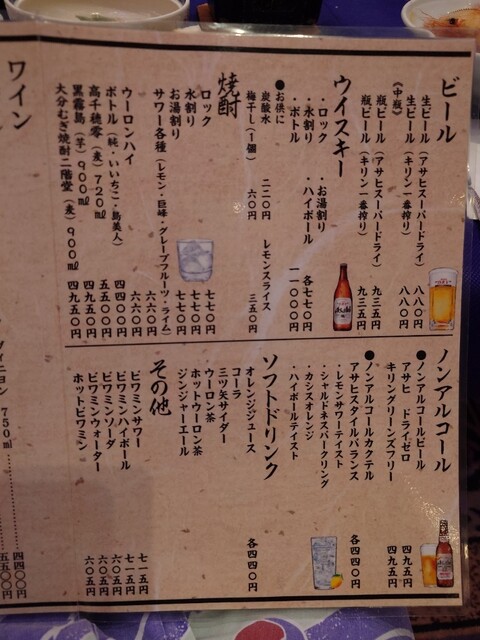 ビール
生ビール（アサヒスーパードライ） 八八〇円
生ビール（キリン一番搾り） 八八〇円
《中瓶》
瓶ビール（アサヒスーパードライ） 九三五円
瓶ビール（キリン一番搾り） 九三五円
ウイスキー
・ロック ・お湯割り 各七七〇円
・水割り ・ハイボール
・ボトル 一一〇〇〇円
●お供に
炭酸水 二二〇円 レモンスライス 三五〇円
梅干し（1個） 六〇円
焼酎
ロック 七七〇円
水割り 七七〇円
お湯割り 七七〇円
サワー各種（レモン・巨峰・グレープフルーツ・ライム） 六六〇円
ウーロンハイ 六六〇円
ボトル（純・いいちこ・島美人） 四四〇〇円
高千穂零（麦）720ml 五五〇〇円
黒霧島（芋）900ml 四九五〇円
大分むぎ焼酎二階堂（麦）900ml 四九五〇円
ノンアルコール
●ノンアルコールビール
アサヒ ドライゼロ 四九五円
キリングリーンズフリー 四九五円
●ノンアルコールカクテル
アサヒスタイルバランス 各四四〇円
・レモンサワーテイスト
・シャルドネスパークリング
・カシスオレンジ
・ハイボールテイスト
ソフトドリンク
オレンジジュース 各四四〇円
コーラ
三ツ矢サイダー
ウーロン茶
ホットウーロン茶
ジンジャーエール
その他
ビワミンサワー 七一五円
ビワミンハイボール 七一五円
ビワミンソーダ 六〇五円
ビワミンウォーター 六〇五円
ホットビワミン 六〇五円
ワイン
四四〇〇円
750ml 五五〇〇円